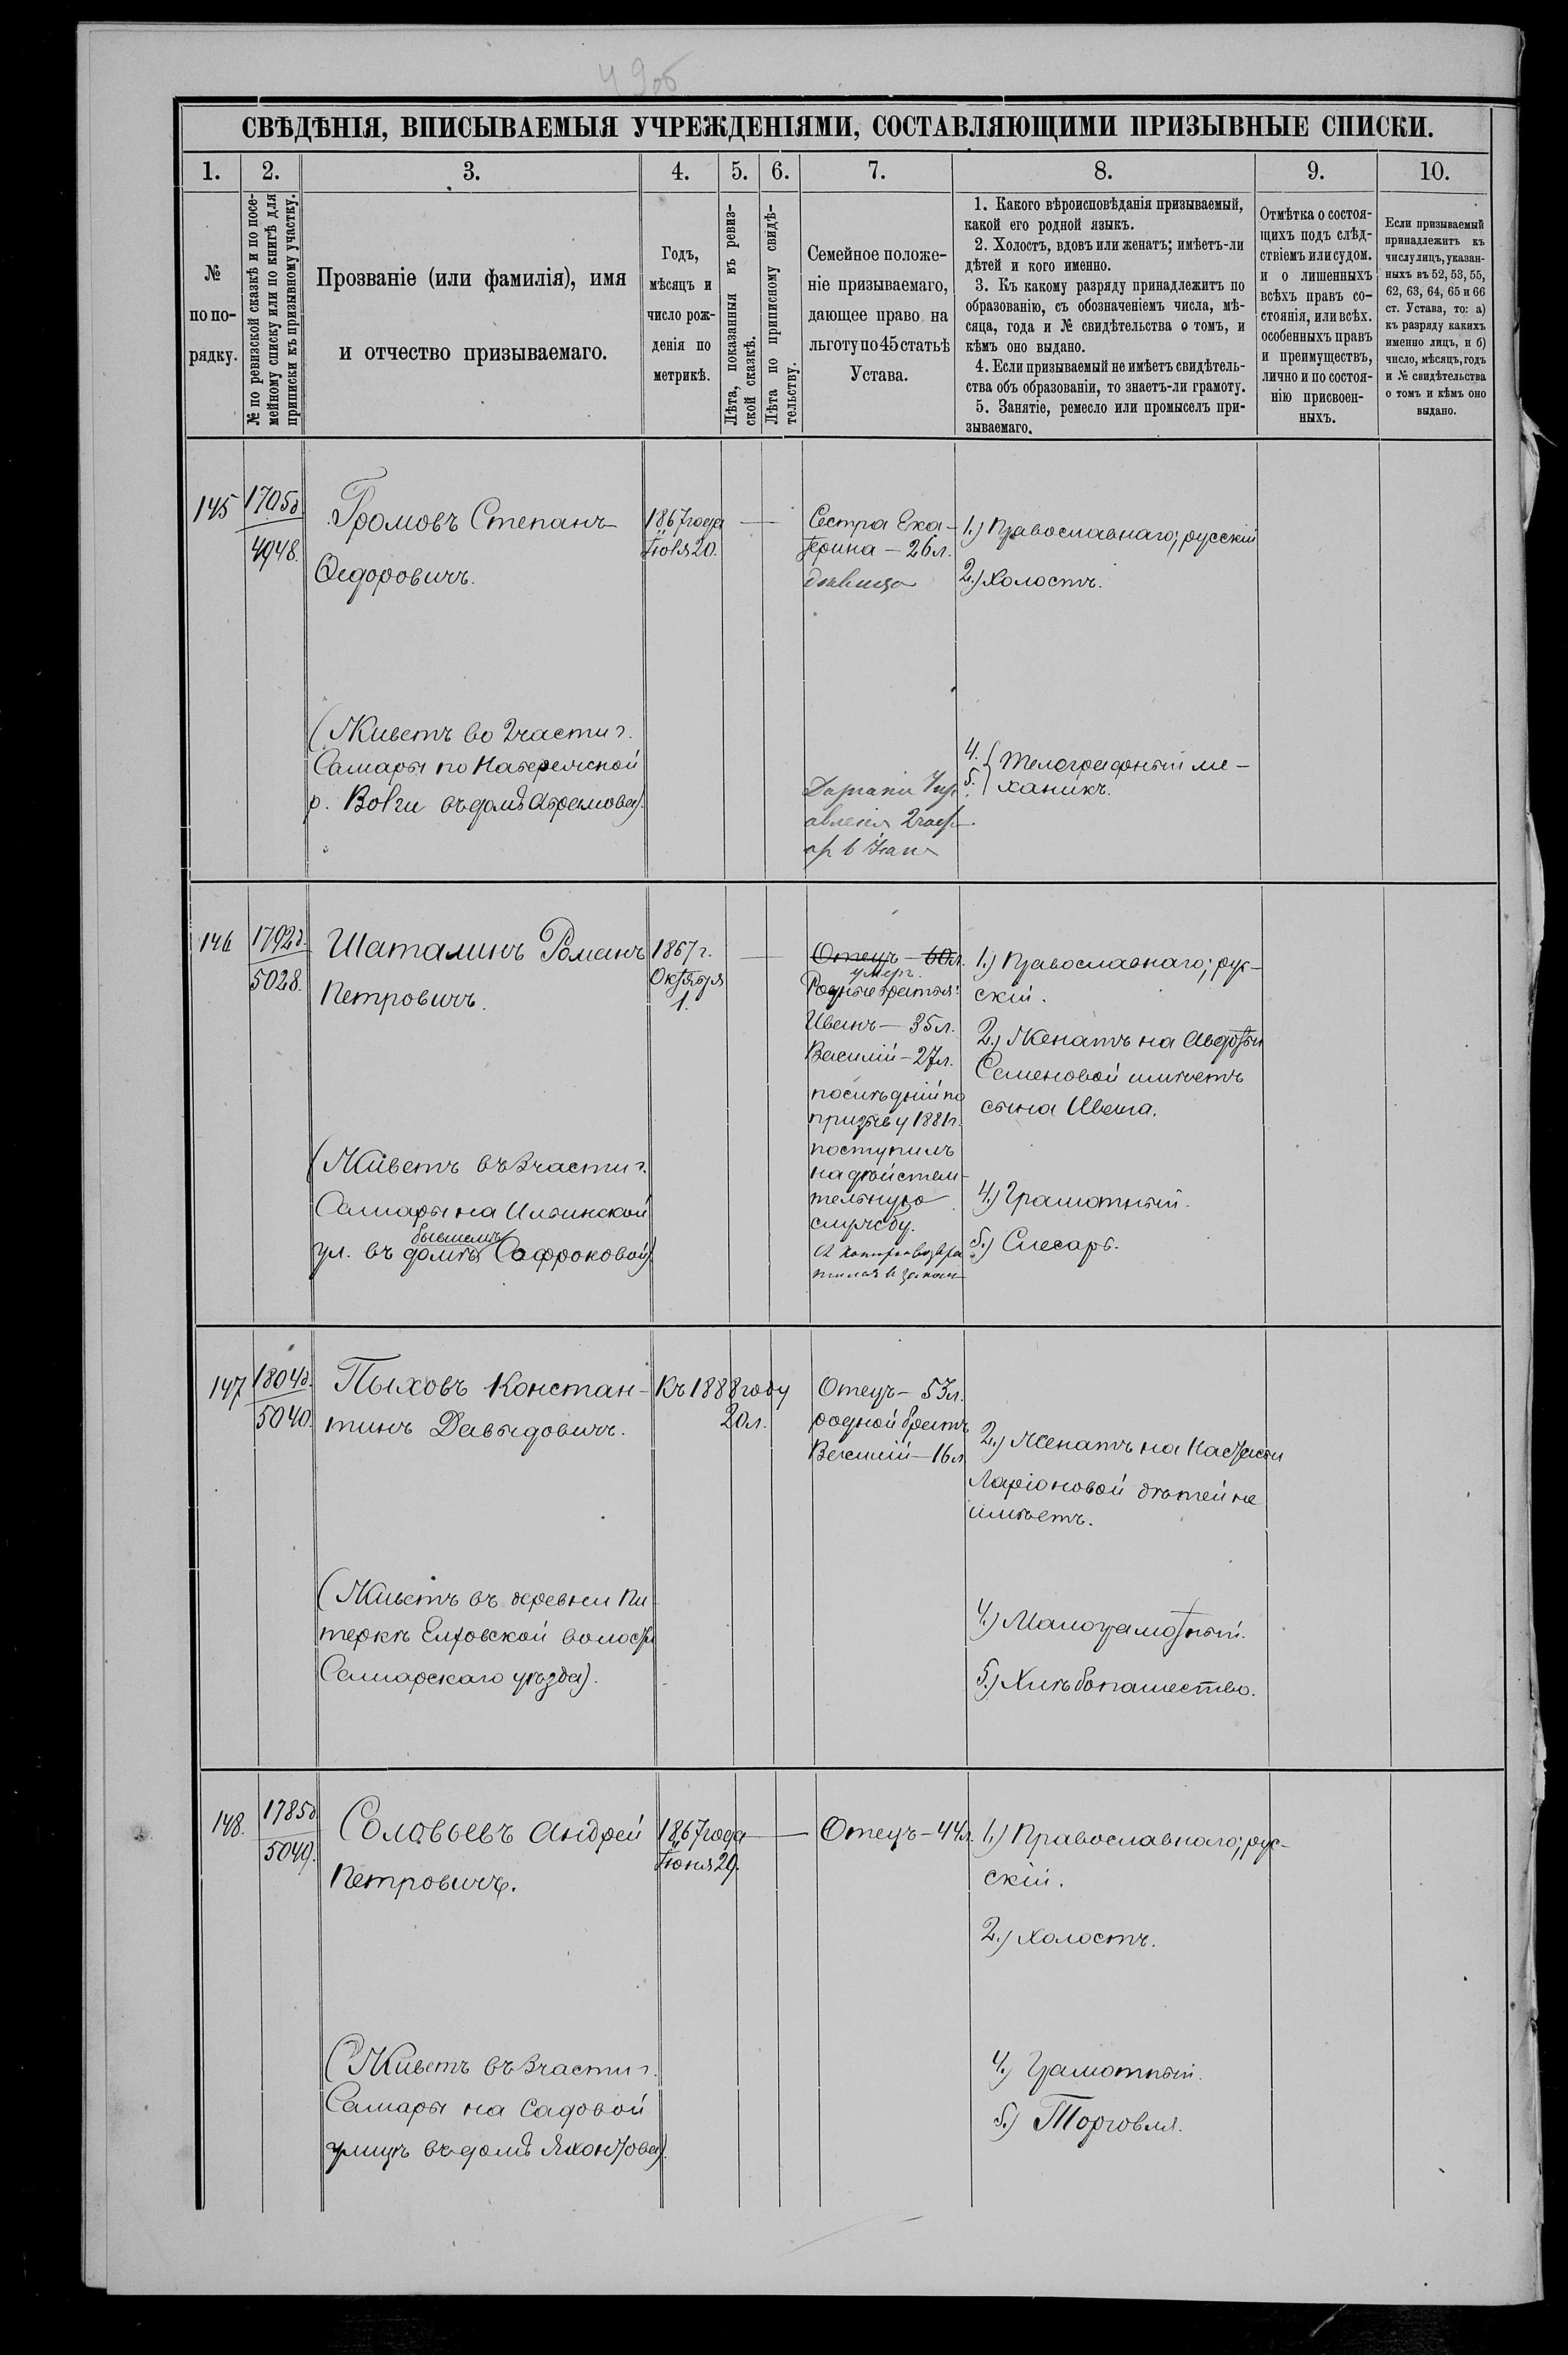 49об
СВѢДѢНІЯ, ВПИСЫВАЕМЫЯ УЧРЕЖДЕНІЯМИ, СОСТАВЛЯЮЩИМИ ПРИЗЫВНЫЕ СПИСКИ.
1.
2.
3.
4.
5.
6.
7.
8.
9.
10.
№
по по-
рядку.
№ по ревизской сказкѣ и по посе-
мейному списку или по книгѣ для
приписки къ призывному участку.
Прозваніе (или фамилія), имя
и отчество призываемаго.
Годъ,
мѣсяцъ и
число рож-
денія по
метрикѣ.
Лѣта, показанныя въ ревиз-
ской сказкѣ.
Лѣта по приписному свидѣ-
тельству.
Семейное положе-
ніе призываемаго,
дающее право на
льготу по 45 статьѣ
Устава.
1. Какого вѣроисповѣданія призываемый,
какой его родной языкъ.
2. Холостъ, вдовъ или женатъ; имѣетъ-ли
дѣтей и кого именно.
3. Къ какому разряду принадлежитъ по
образованію, съ обозначеніемъ числа, мѣ-
сяца, года и № свидѣтельства о томъ, и
кѣмъ оно выдано.
4. Если призываемый не имѣетъ свидѣтель-
ства объ образованіи, то знаетъ-ли грамоту.
5. Занятіе, ремесло или промыселъ при-
зываемаго.
Отмѣтка о состоя-
щихъ подъ слѣд-
ствіемъ или судом.
и о лишенныхъ
всѣхъ правъ со-
стоянія, или всѣх.
особенныхъ правъ
и преимуществъ,
лично и по состоя-
нію присвоен-
ныхъ.
Если призываемый
принадлежитъ къ
числу лицъ, указан-
ныхъ въ 52, 53, 55,
62, 63, 64, 65 и 66
ст. Устава, то: а)
къ разряду какихъ
именно лицъ, и б)
число, мѣсяцъ, годъ
и № свидѣтельства
о томъ и кѣмъ оно
выдано.
145
1705д.
4948.
Громовъ Степанъ
Ѳедоровичъ.
(Живетъ во 2 части г.
Самары по Набережной
р. Волги въ домѣ Абрамова).
1867 года
Іюля 20.
Сестра Ека-
терина — 26 л.
дѣвица
1.) Православнаго; русскій
2.) Холостъ.
4.
5.
Телеграфный ме-
ханикъ.
146
1792д.
5028.
Шаталинъ Романъ
Петровичъ.
(Живетъ въ 3 части г.
Самары на Ильинской
бывшемъ
ул. въ домѣ Сафроновой).
1867 г.
Октября
1.
Отецъ — 60 л.
умер.
Родные братья:
Иванъ — 35 л.
Василій — 27 л.
послѣдній по
призыву 1881 г.
поступилъ
на дѣйстви-
тельную
службу.
1.) Православнаго; рус-
скій.
2.) Женатъ на Авдотьи
Семеновой имѣетъ
сына Ивана.
4.) Грамотный.
5.) Слесарь.
147
1804д.
5040.
Пыховъ Констан-
тинъ Давыдовичъ.
(Живетъ въ деревни Пи-
теркѣ Елховской волости
Самарскаго уѣзда).
Къ 1888 году
20 л.
Отецъ — 53 л.
родной братъ
Василій — 16 л.
2.) Женатъ на Настасьи
Ларіоновой дѣтей не
имѣетъ.
4.) Малограмотный.
5.) Хлѣбопашество.
148.
1785д.
5049.
Соловьевъ Андрей
Петровичъ.
(Живетъ въ 3 части г.
Самары на Садовой
улицѣ въ домѣ Яхонтова).
1867 года
Іюня 29.
Отецъ — 44 л.
1.) Православнаго; рус-
скій.
2.) Холостъ.
4.) Грамотный.
5.) Торговля.